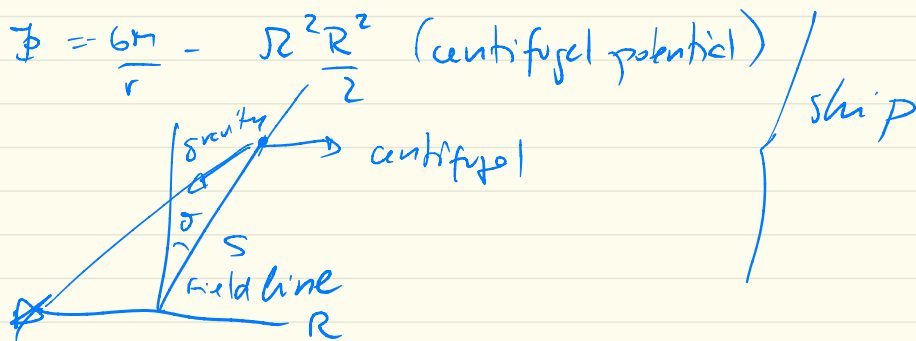 Φ = - GM/r - Ω²R²/2 (centifugel potential)
ship
gravity
centifugel
σ
S
Field line
R